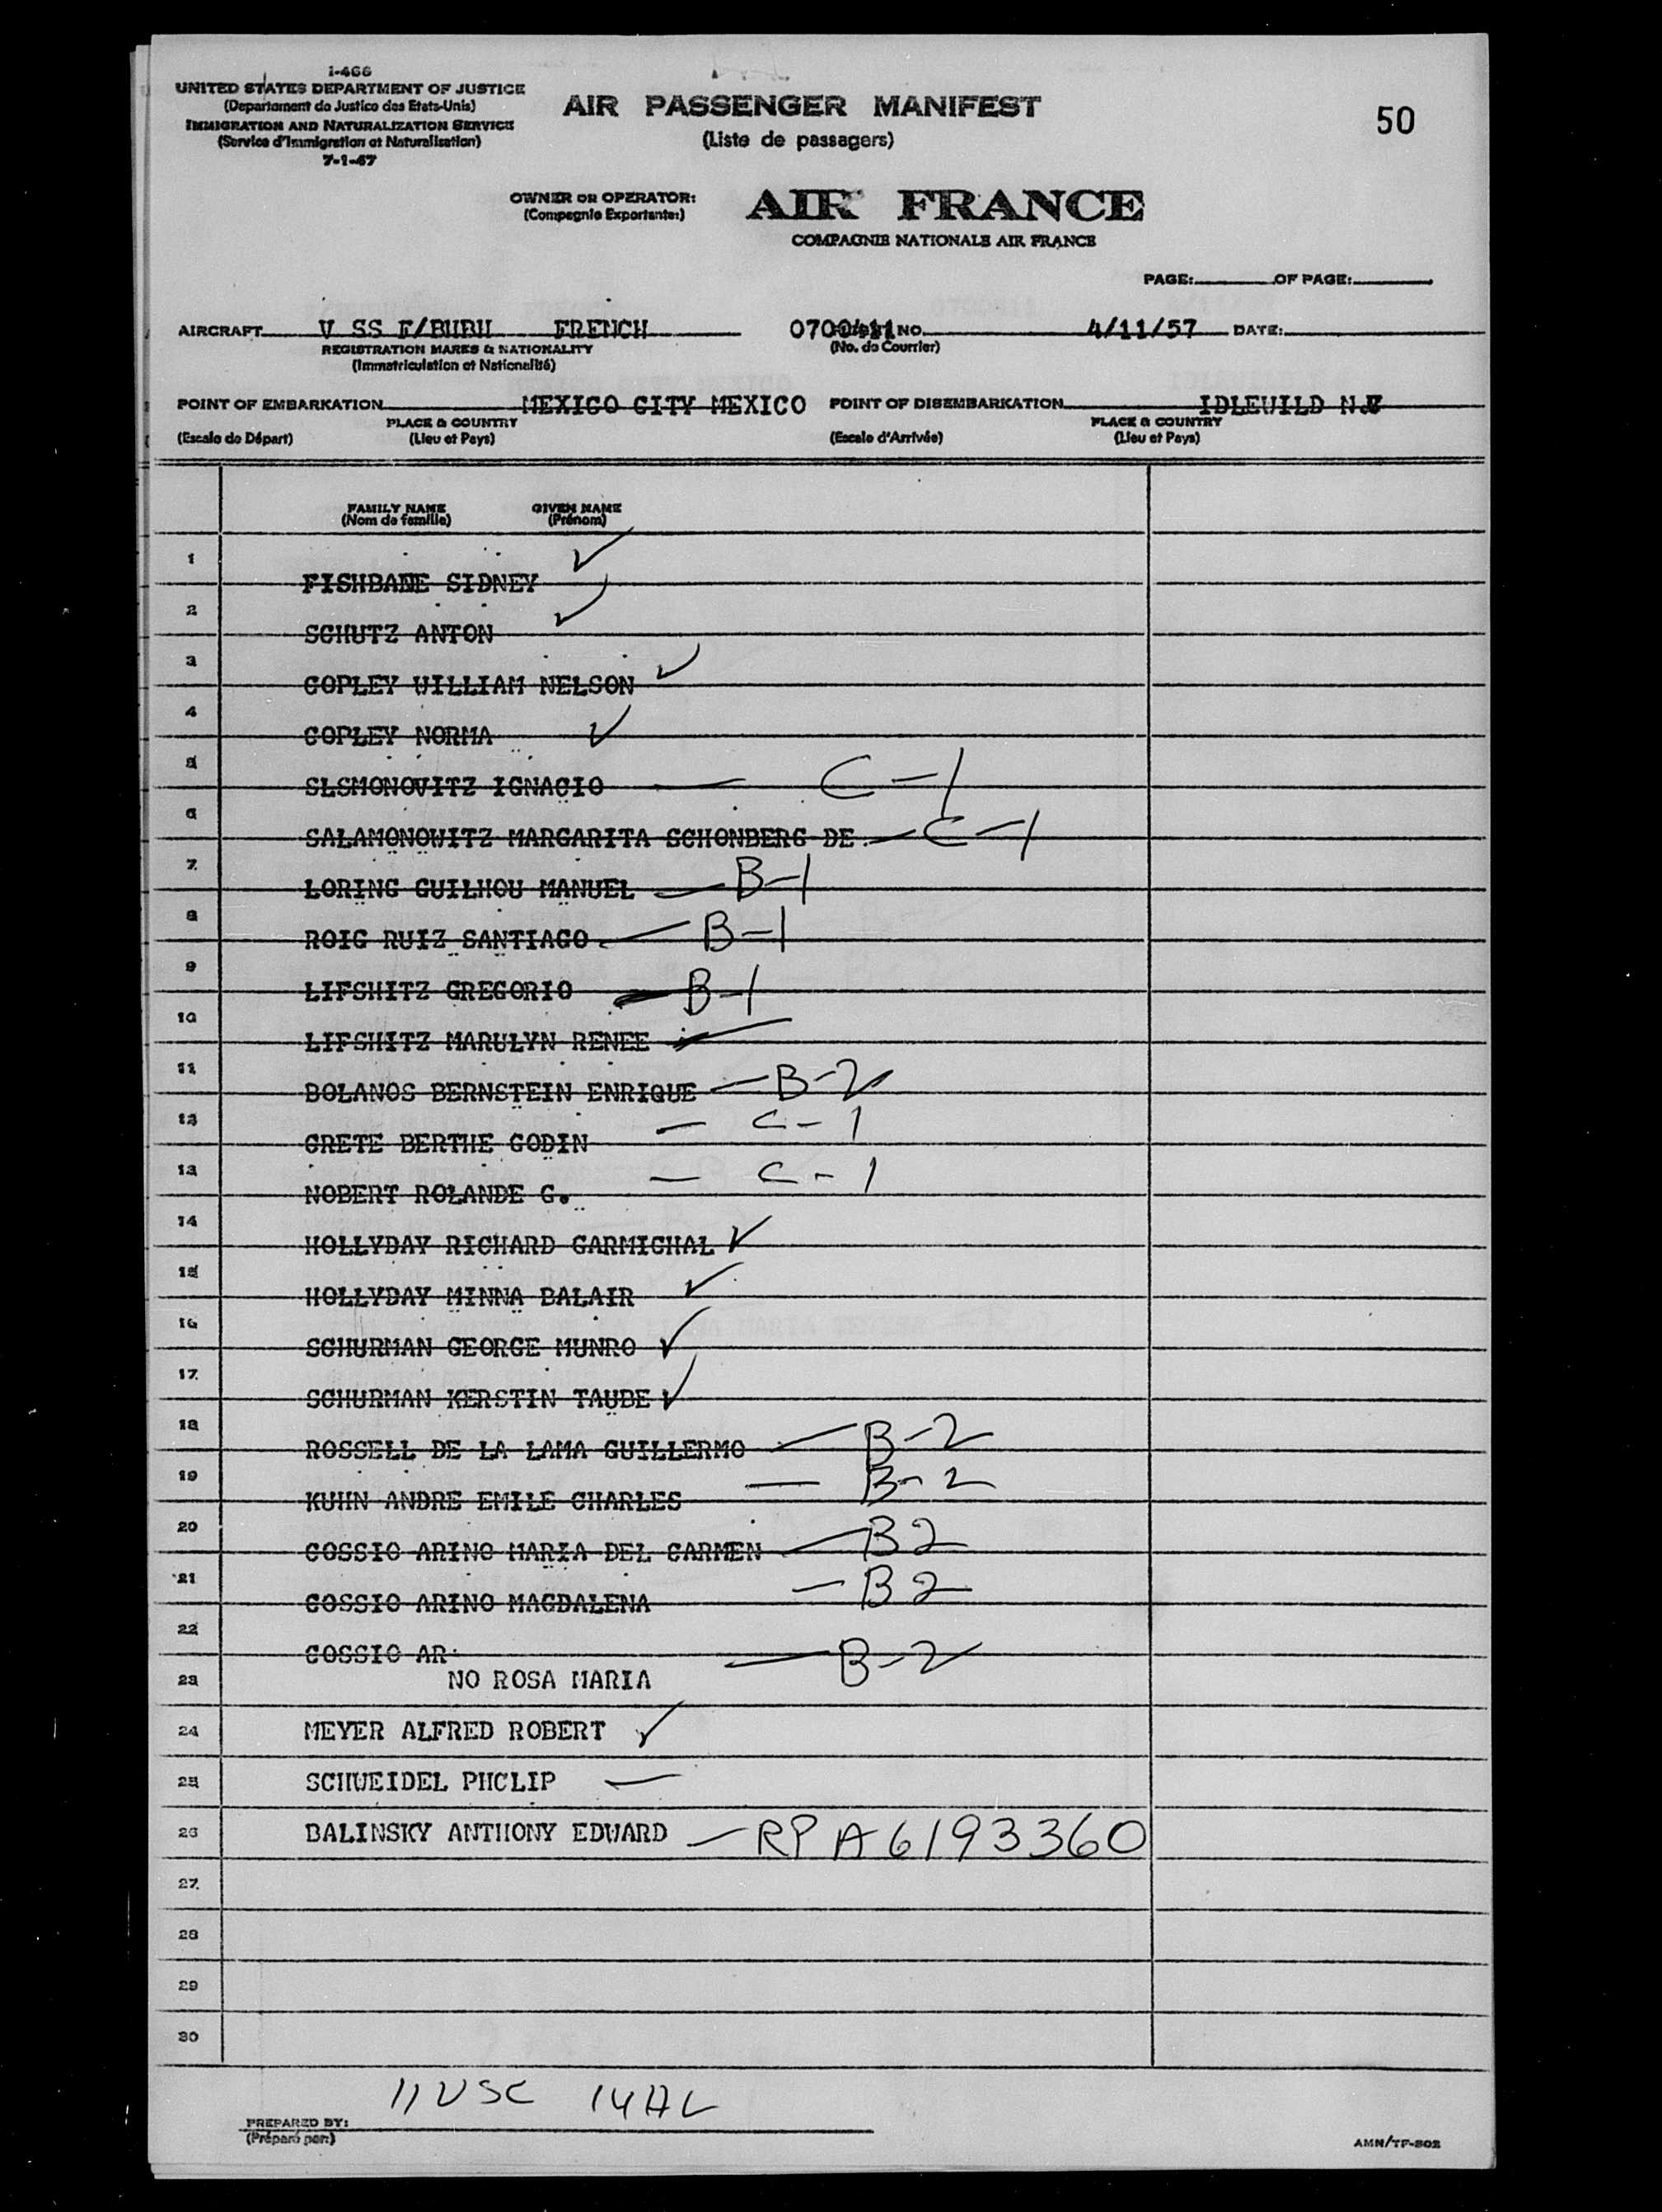 I-466
UNITED STATES DEPARTMENT OF JUSTICE
(Departament do Justice des Etats-Unis)
IMMIGRATION AND NATURALIZATION SERVICE
(Service d'Immigration et Naturalisation)
7-1-47
AIR PASSENGER MANIFEST
(Liste de passagers)
50
OWNER OR OPERATOR:
(Compagnie Exportante:)
AIR FRANCE
COMPAGNIE NATIONALE AIR FRANCE
PAGE: OF PAGE:
AIRCRAFT V SS F/BHBH FRENCH 0700411 NO. 4/11/57 DATE:
REGISTRATION MARKS & NATIONALITY
(Immatriculation et Nationalité)
(No. do Courrier)
POINT OF EMBARKATION MEXICO CITY MEXICO POINT OF DISEMBARKATION IDLEWILD N.Y
(Escale de Départ)
PLACE & COUNTRY
(Lieu et Pays)
(Escale d'Arrivée)
PLACE & COUNTRY
(Lieu et Pays)
FAMILY NAME GIVEN NAME
(Nom de famille) (Prénom)
1 FISHBANE SIDNEY ✓
2 SCHUTZ ANTON ✓
3 COPLEY WILLIAM NELSON ✓
4 COPLEY NORMA ✓
5 SLSMONOVITZ IGNACIO — C-1
6 SALAMONOWITZ MARGARITA SCHONBERG DE — C-1
7 LORING GUILHOU MANUEL — B-1
8 ROIG RUIZ SANTIAGO — B-1
9 LIFSHITZ GREGORIO — B-1
10 LIFSHITZ MARULYN RENEE —
11 BOLANOS BERNSTEIN ENRIQUE — B-2
12 GRETE BERTHE GODIN — C-1
13 NOBERT ROLANDE G. — C-1
14 HOLLYDAY RICHARD CARMICHAL ✓
15 HOLLYDAY MINNA BALAIR ✓
16 SCHURMAN GEORGE MUNRO ✓
17 SCHURMAN KERSTIN TAUBE ✓
18 ROSSELL DE LA LAMA GUILLERMO — B-2
19 KUHN ANDRE EMILE CHARLES — B-2
20 COSSIO ARINO MARIA DEL CARMEN — B2
21 COSSIO ARINO MAGDALENA — B2
22 COSSIO AR — B-2
23 NO ROSA MARIA
24 MEYER ALFRED ROBERT ✓
25 SCHWEIDEL PHCLIP —
26 BALINSKY ANTHONY EDWARD — RP A6193360
27
28
29
30
11 USC 14AL
PREPARED BY:
(Préparé par:)
AMN/TF-802